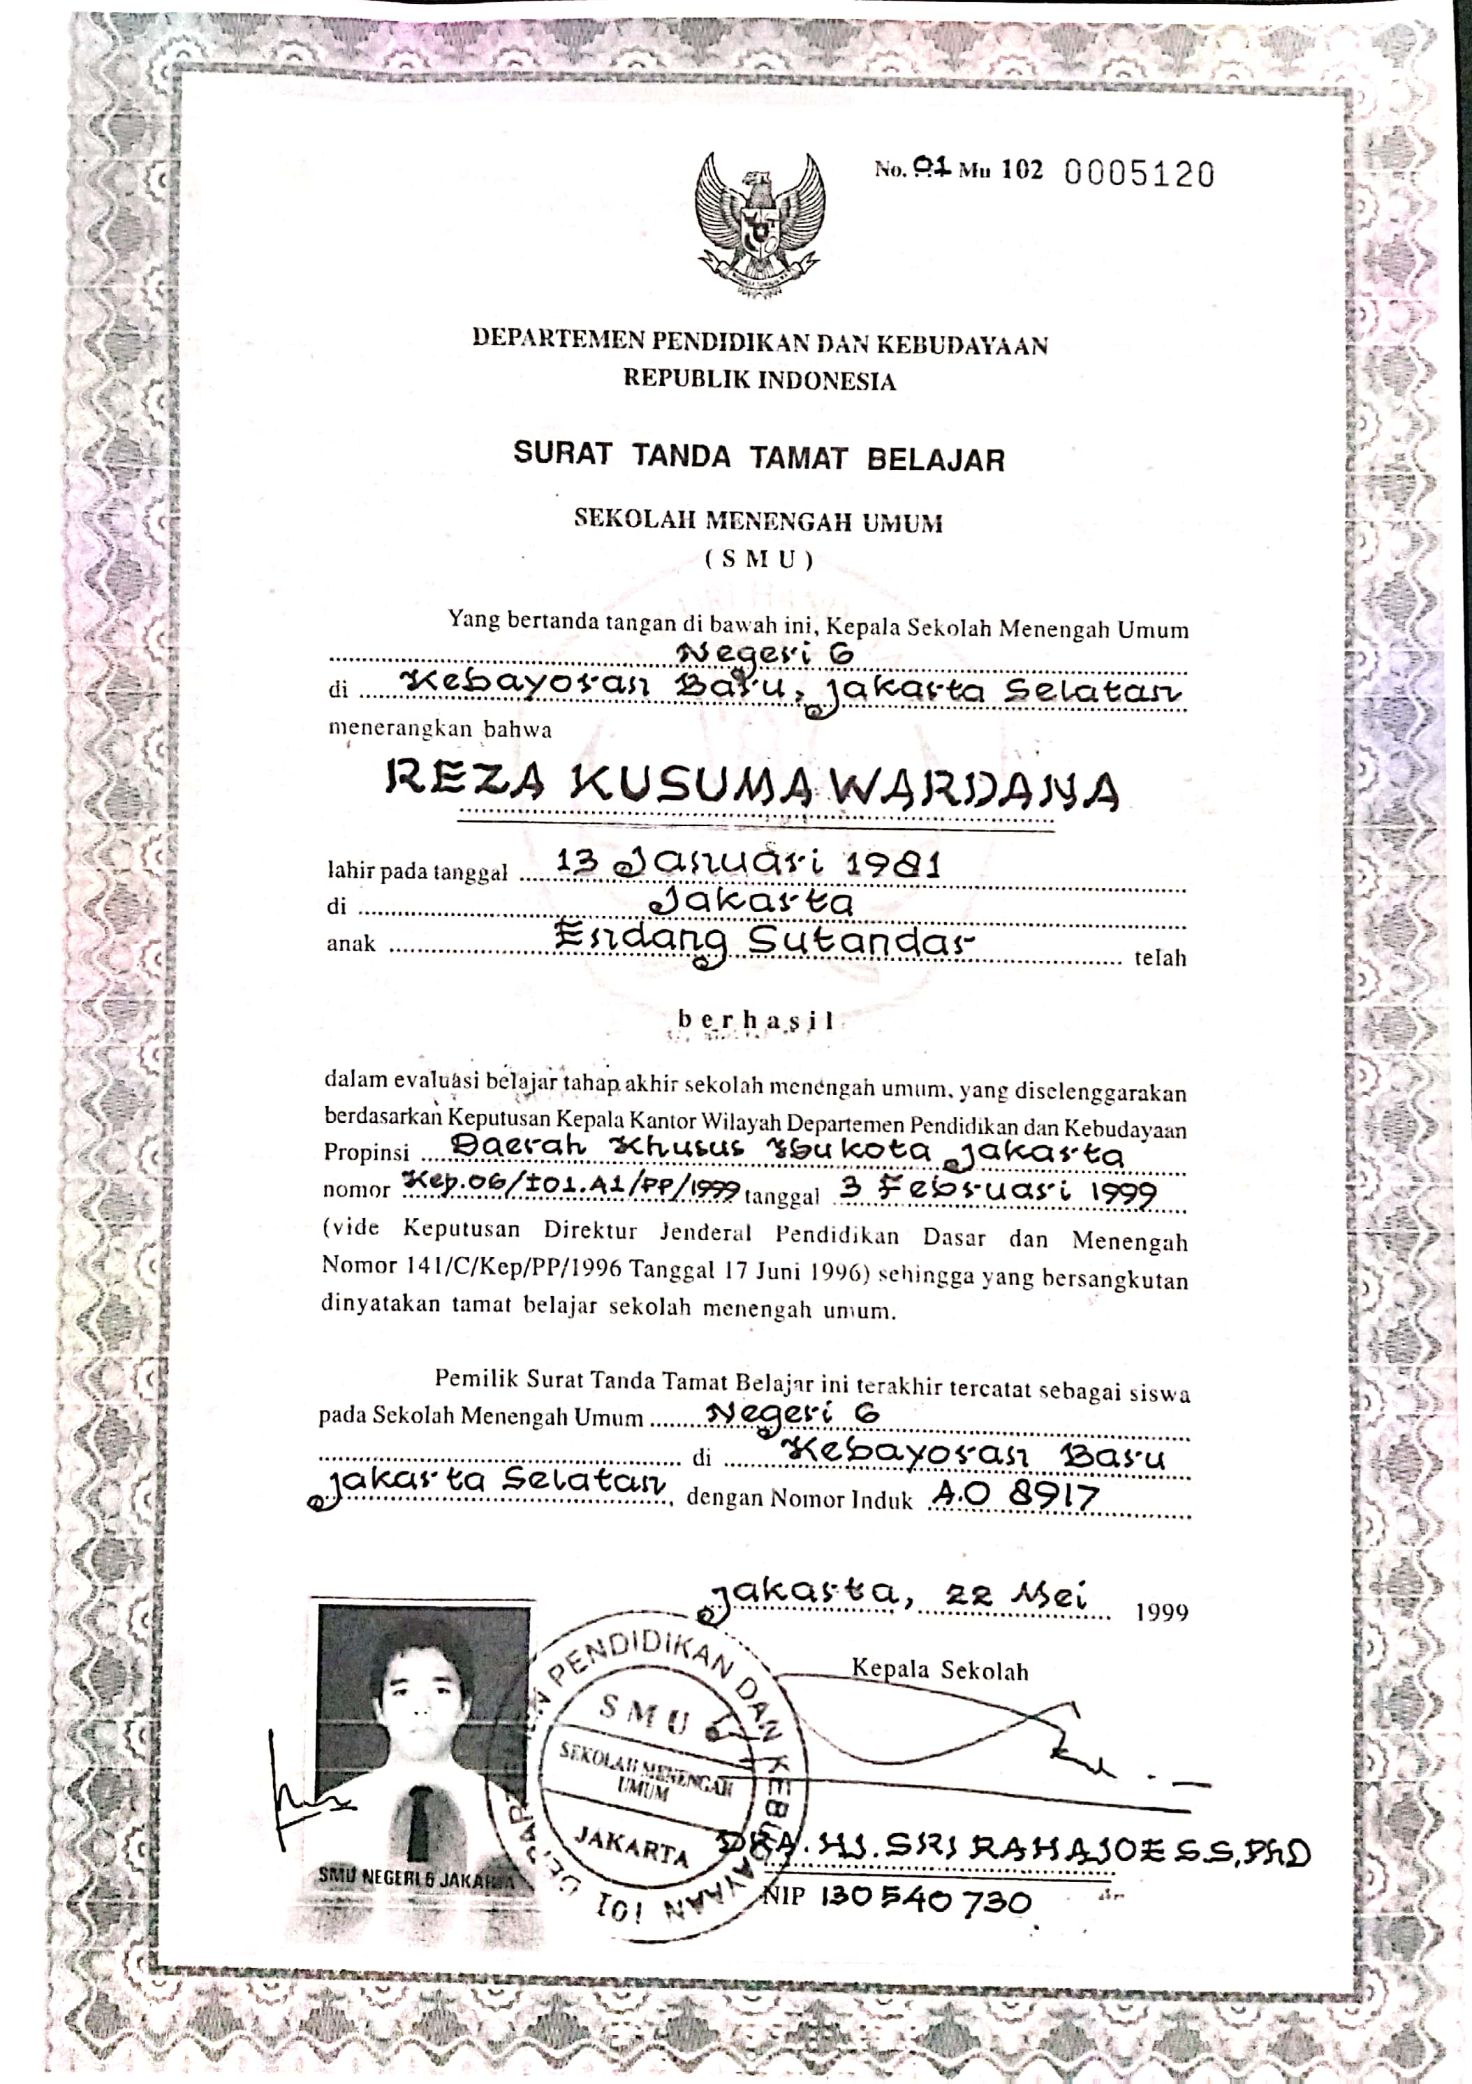 No. 01 Mu 102 0005120
DEPARTEMEN PENDIDIKAN DAN KEBUDAYAAN
REPUBLIK INDONESIA
SURAT TANDA TAMAT BELAJAR
SEKOLAH MENENGAH UMUM
( S M U )
Yang bertanda tangan di bawah ini, Kepala Sekolah Menengah Umum
Negeri 6
di Kebayoran Baru, Jakarta Selatan
menerangkan bahwa
REZA KUSUMA WARDANA
lahir pada tanggal 13 Januari 1981
di Jakarta
anak Endang Sutandar telah
berhasil
dalam evaluasi belajar tahap akhir sekolah menengah umum, yang diselenggarakan
berdasarkan Keputusan Kepala Kantor Wilayah Departemen Pendidikan dan Kebudayaan
Propinsi Daerah Khusus Ibukota Jakarta
nomor Kep.06/I01.A1/PP/1999 tanggal 3 Februari 1999
(vide Keputusan Direktur Jenderal Pendidikan Dasar dan Menengah
Nomor 141/C/Kep/PP/1996 Tanggal 17 Juni 1996) sehingga yang bersangkutan
dinyatakan tamat belajar sekolah menengah umum.
Pemilik Surat Tanda Tamat Belajar ini terakhir tercatat sebagai siswa
pada Sekolah Menengah Umum Negeri 6
di Kebayoran Baru
Jakarta Selatan, dengan Nomor Induk A.O 8917
Jakarta, 22 Mei 1999
Kepala Sekolah
DEPARTEMEN PENDIDIKAN DAN KEBUDAYAAN I01
S M U 6
SEKOLAH MENENGAH
UMUM
JAKARTA
SMU NEGERI 6 JAKARTA
DRA. HJ. SRI RAHAJOE S.S, PhD
NIP 130 540 730